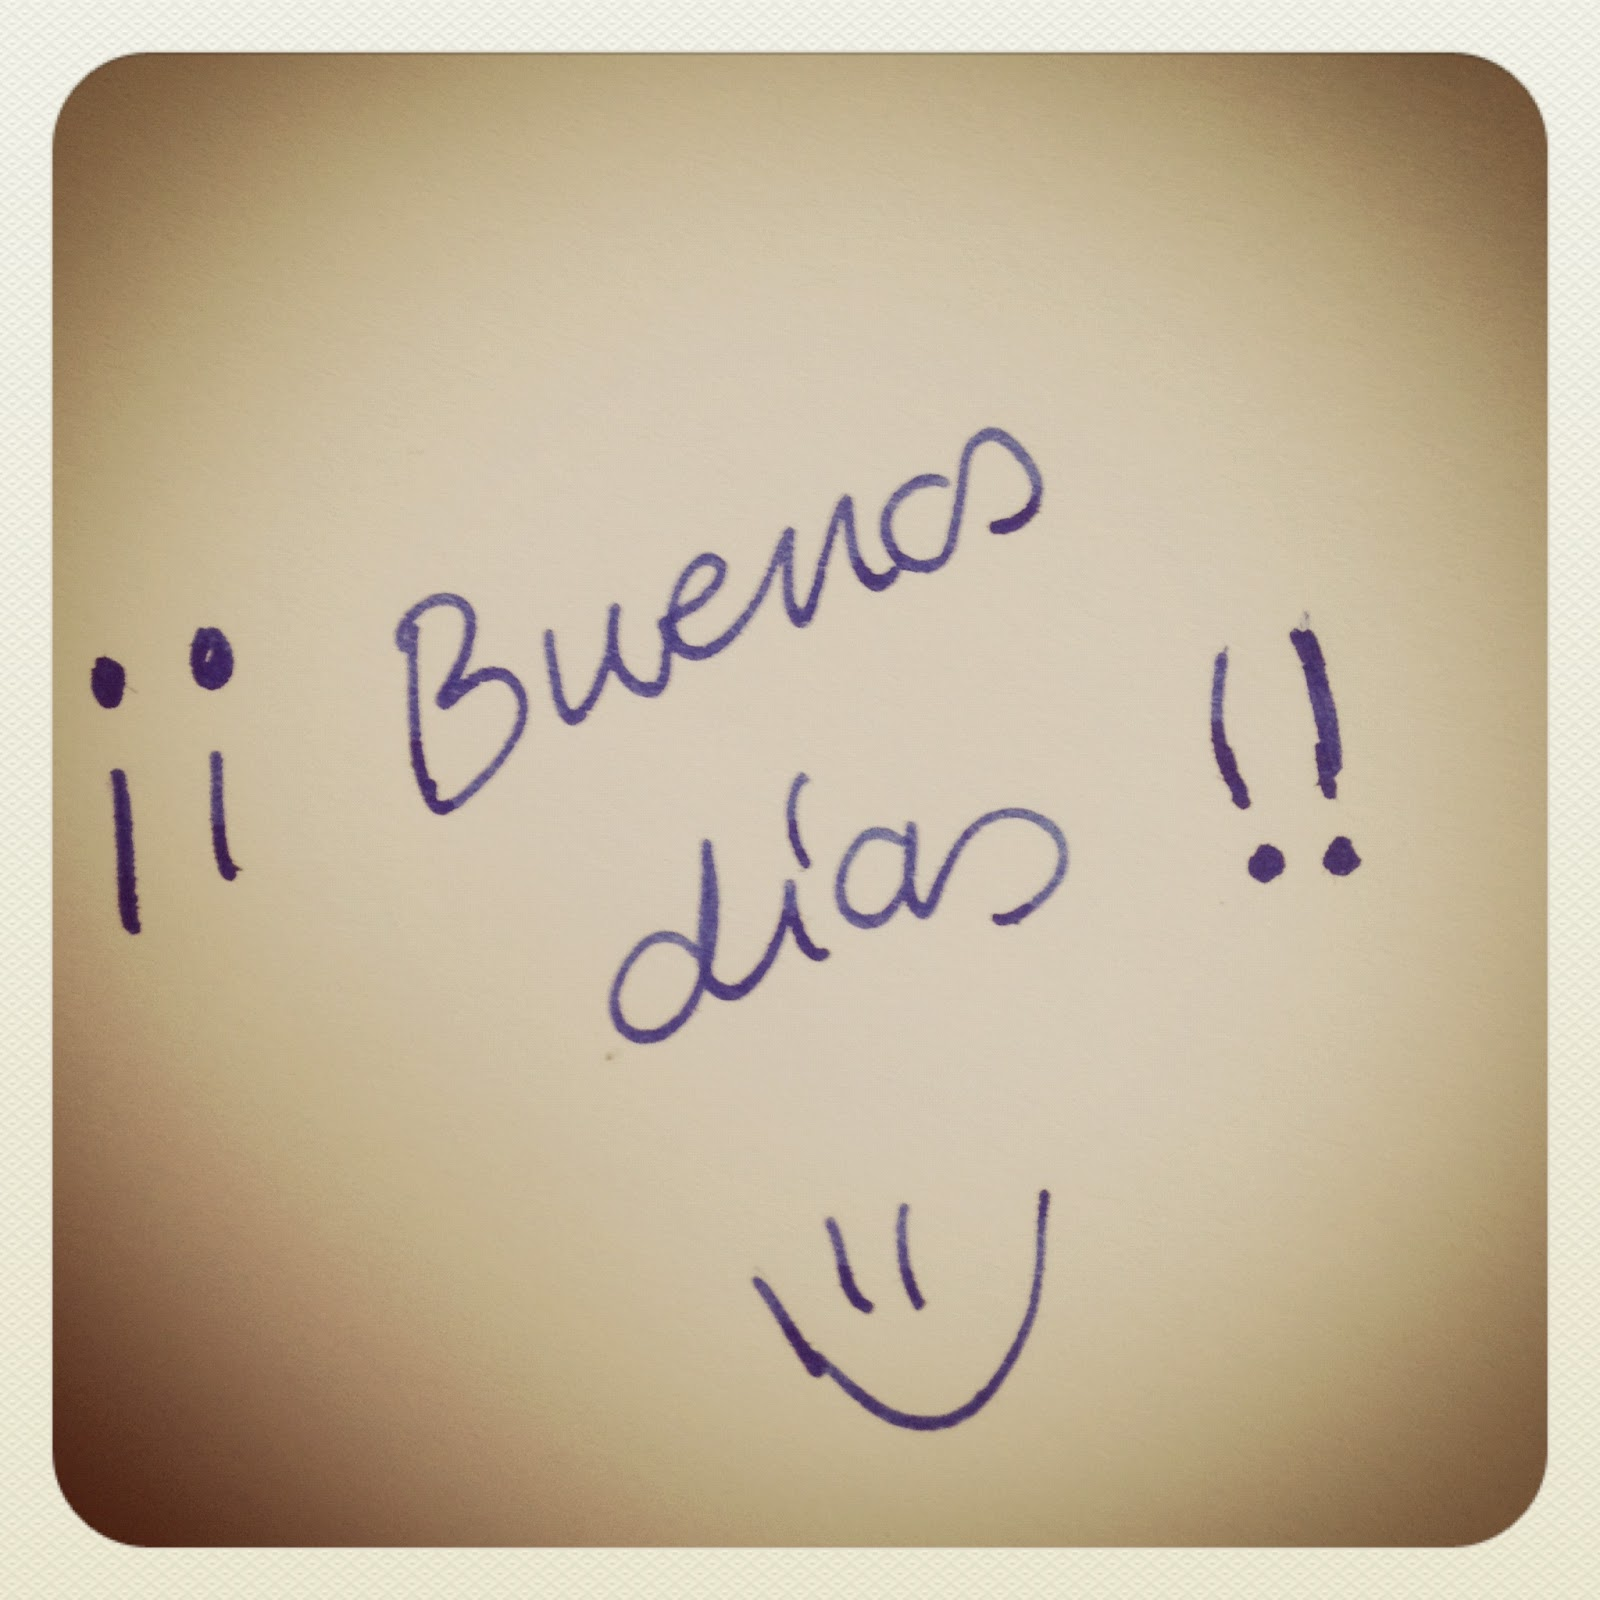 ¡¡ Buenos
días !!